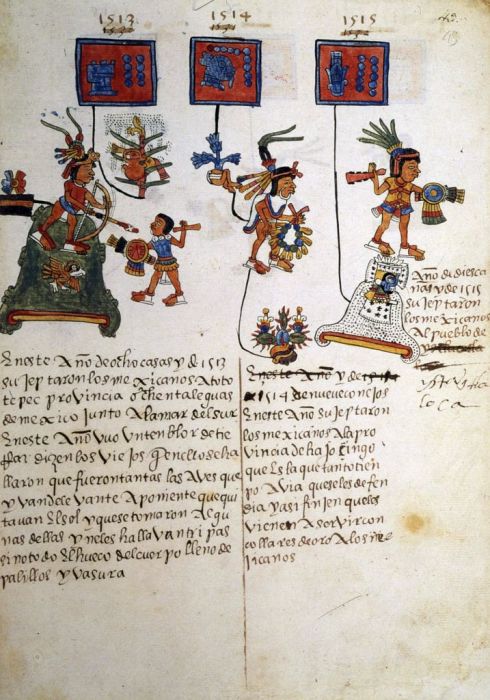 1513
1514
1515
49
Año de diesca
ñas y de 1515
sujeptaron
los mexicanos
Al pueblo de
ystactla
loca
En este Año de ocho casas y de 1513
sujeptaron los mexicanos Atoto
tepec provincia ochenta leguas
de mexico junto Alamar del sur
En este Año Vuo Vn temblor de tie
rra y dizen los Viejos
llaron que fueron tantas las Aves que
yvan de levante Aponiente que qui
tavan El sol y que se tomaron Algu
nas dellas y no les hallavan tripas
sino todo El hueco del cuerpo lleno de
palillos y vasura
En este Año y de
1514 de nueve conejos
En este Año sujeptaron
los mexicanos Ala pro
vincia de
que Es la que tanto tien
po Avia que se les defen
dia y asi finjen que les
vienen A servir con
collares de oro A los me
xicanos